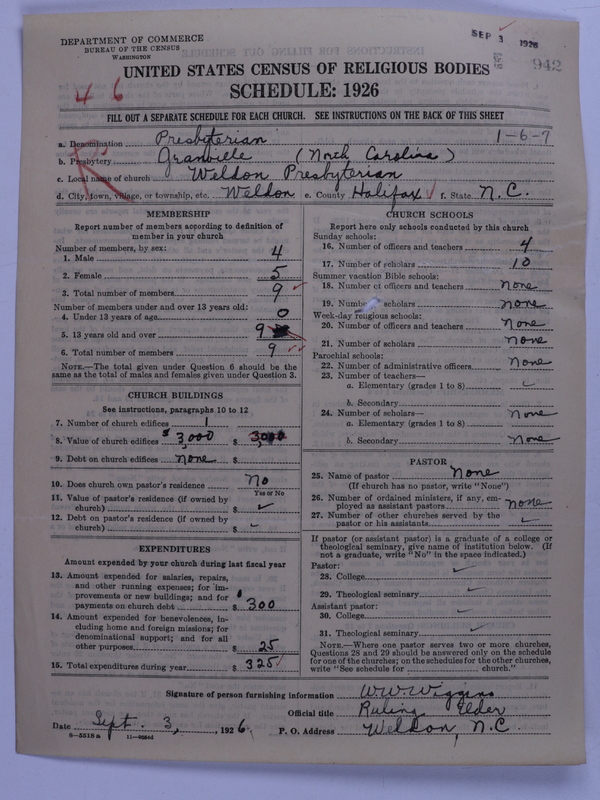 DEPARTMENT OF COMMERCE
BUREAU OF THE CENSUS
WASHINGTON
SEP 3 1926
942
UNITED STATES CENSUS OF RELIGIOUS BODIES
SCHEDULE: 1926
4 6
FILL OUT A SEPARATE SCHEDULE FOR EACH CHURCH. SEE INSTRUCTIONS ON THE BACK OF THIS SHEET
1-6-7
R
a. Denomination Presbyterian
b. Presbytery Granville (North Carolina)
c. Local name of church Weldon Presbyterian
d. City, town, village, or township, etc. Weldon e. County Halifax f. State N.C.
MEMBERSHIP
Report number of members according to definition of
member in your church
Number of members, by sex:
1. Male 4
2. Female 5
3. Total number of members 9
Number of members under and over 13 years old:
4. Under 13 years of age 0
5. 13 years old and over 9
6. Total number of members 9
NOTE.—The total given under Question 6 should be the
same as the total of males and females given under Question 3.
CHURCH BUILDINGS
See instructions, paragraphs 10 to 12
7. Number of church edifices 1
8. Value of church edifices $3,000 $ 3000
9. Debt on church edifices none $
10. Does church own pastor's residence No
Yes or No
11. Value of pastor's residence (if owned by
church) $
12. Debt on pastor's residence (if owned by
church) $
EXPENDITURES
Amount expended by your church during last fiscal year
13. Amount expended for salaries, repairs,
and other running expenses; for im-
provements or new buildings; and for
payments on church debt $ 300
14. Amount expended for benevolences, in-
cluding home and foreign missions; for
denominational support; and for all
other purposes $ 25
15. Total expenditures during year $ 325
CHURCH SCHOOLS
Report here only schools conducted by this church
Sunday schools:
16. Number of officers and teachers 4
17. Number of scholars 10
Summer vacation Bible schools:
18. Number of officers and teachers none
19. Number of scholars none
Week-day religious schools:
20. Number of officers and teachers none
21. Number of scholars none
Parochial schools:
22. Number of administrative officers none
23. Number of teachers—
a. Elementary (grades 1 to 8)
b. Secondary
24. Number of scholars— none
a. Elementary (grades 1 to 8)
b. Secondary none
PASTOR
25. Name of pastor none
(If church has no pastor, write "None")
26. Number of ordained ministers, if any, em-
ployed as assistant pastors none
27. Number of other churches served by the
pastor or his assistants
If pastor (or assistant pastor) is a graduate of a college or
theological seminary, give name of institution below. (If
not a graduate, write "No" in the space indicated.)
Pastor:
28. College
29. Theological seminary
Assistant pastor:
30. College
31. Theological seminary
NOTE.—Where one pastor serves two or more churches,
Questions 28 and 29 should be answered only on the schedule
for one of the churches; on the schedules for the other churches,
write "See schedule for church."
Signature of person furnishing information W W Wiggins
Official title Ruling Elder
Date Sept. 3, 1926 P. O. Address Weldon, N.C.